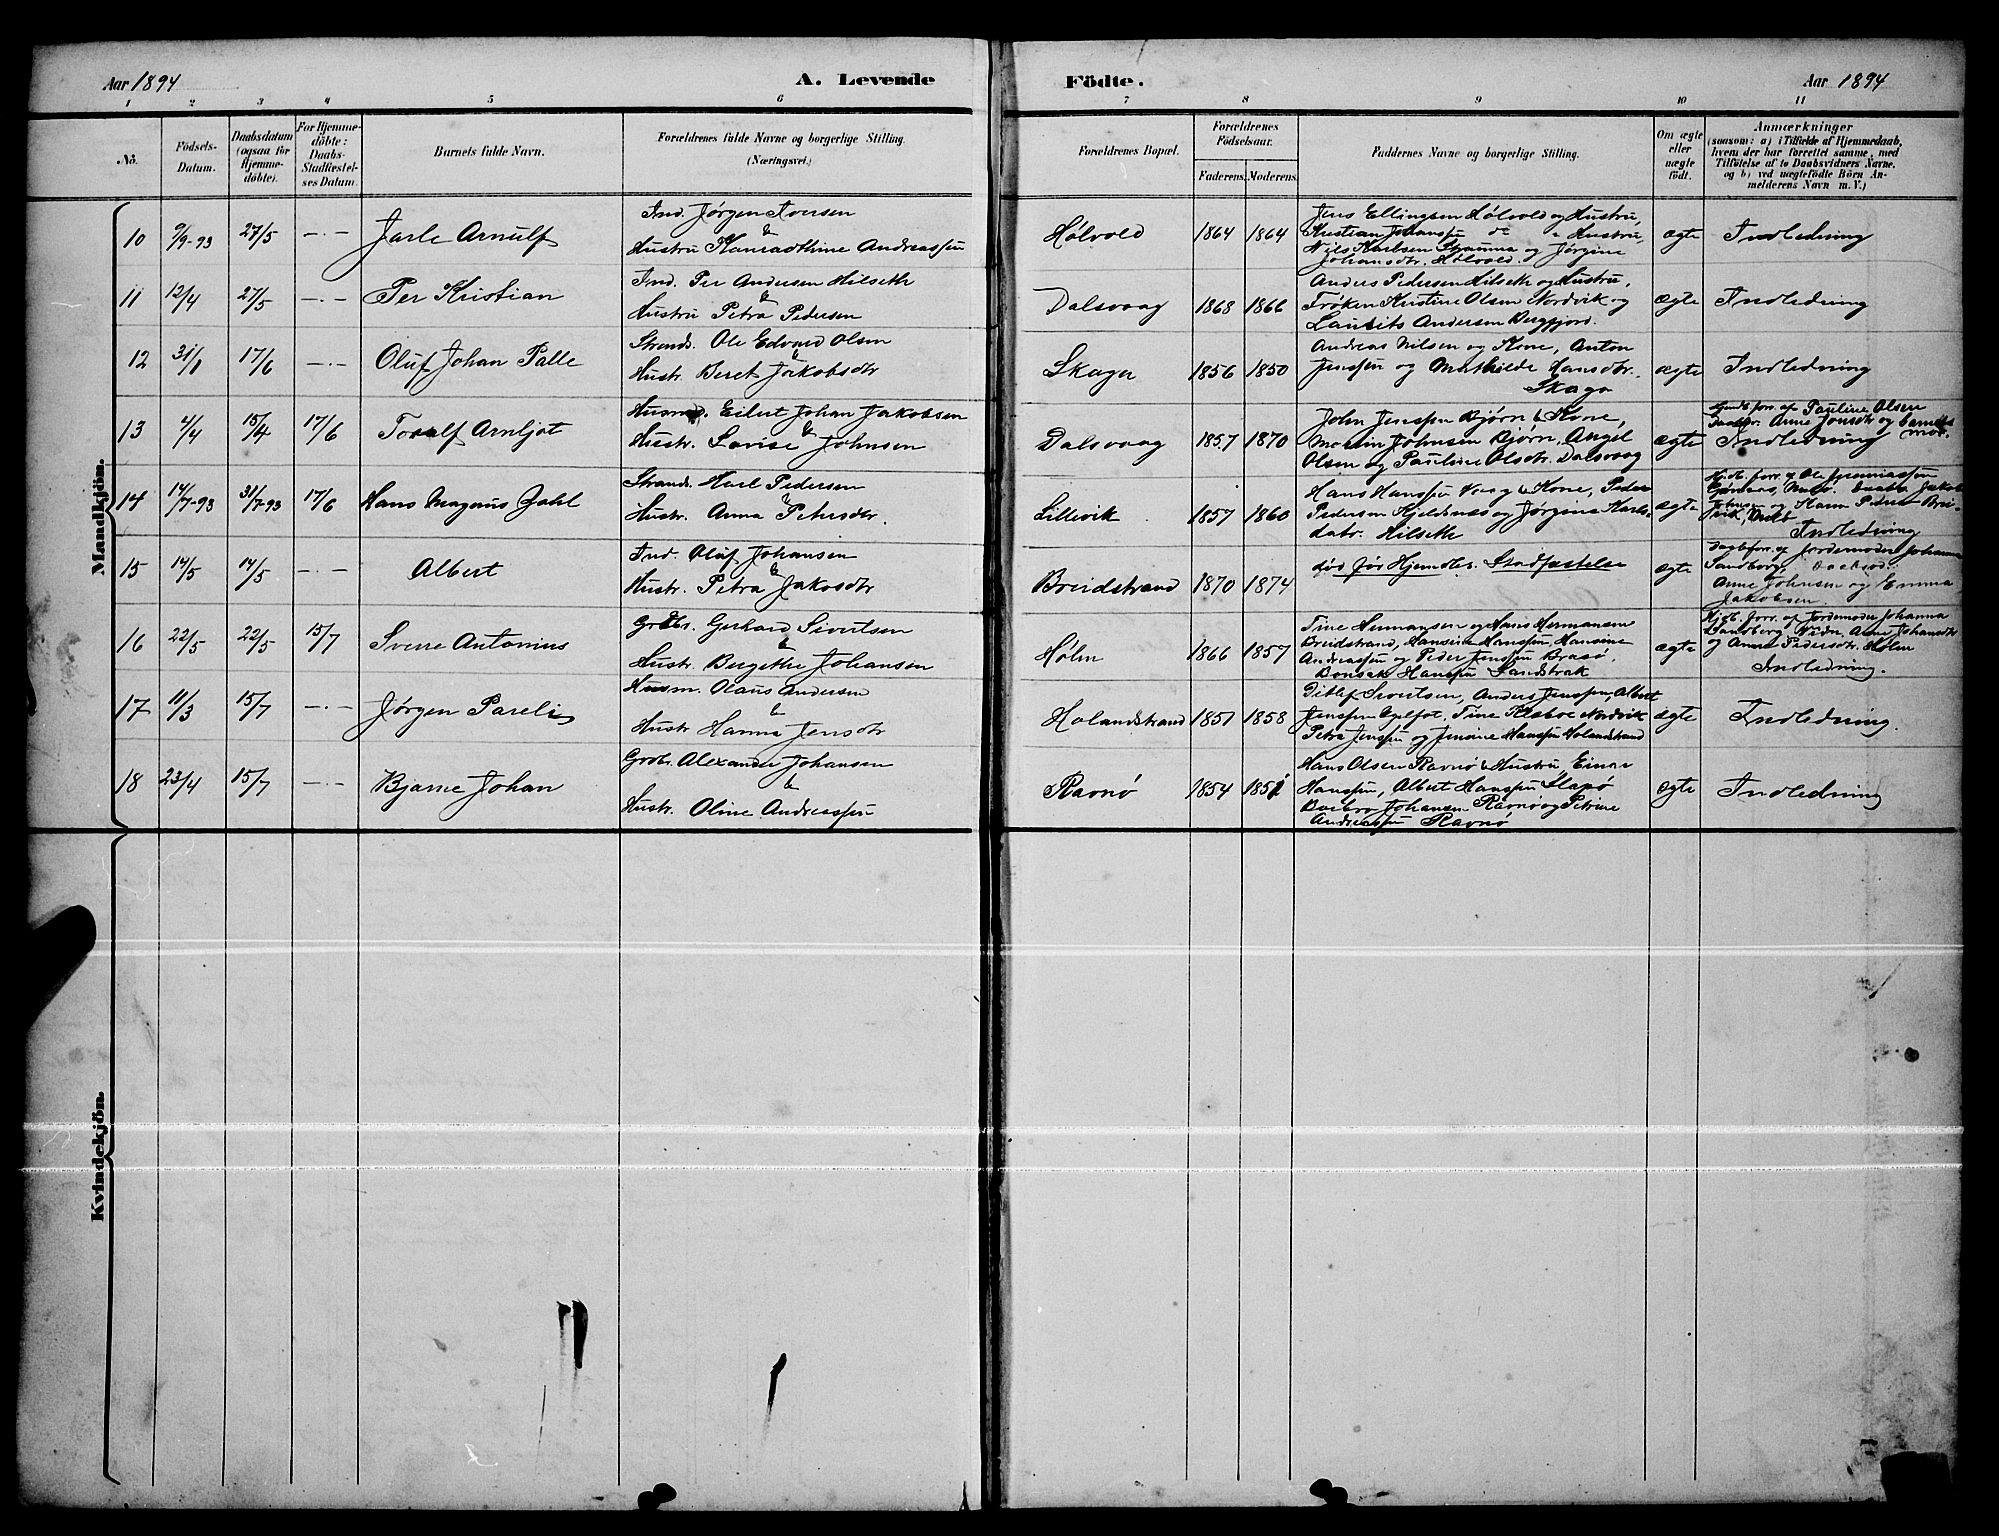 Aar 1894
A. Levende
Födte.
Aar 1894
1 2 3 4 5 6 7 8 9 10 11
No.
Födsels-
Datum.
Daabsdatum
(ogsaa for
Hjemme-
döbte).
For Hjemme-
döbte:
Daabs-
Stadfæstel-
ses Datum.
Barnets fulde Navn.
Forældrenes fulde Navne og borgerlige Stilling.
(Næringsvei.)
Forældrenes Bopæl.
Forældrenes
Födselsaar.
Faderens. Moderens.
Faddernes Navne og borgerlige Stilling.
Om ægte
eller
uægte
födt.
Anmærkninger
(saasom: a) i Tilfælde af Hjemmedaab,
hvem der har forrettet samme, med
Tilföielse af to Daabsvidners Navne,
og b) ved uægtefödte Börn An-
melderens Navn m. V.)
Mandkjön.
10 9/9-93 27/5 -"- Jarle Arnulf
Ind. Jørgen Iversen
&
Hustru Konradthine Andreassen
Hølvold 1864 1864
Jens Ellingsen Hølvold og Hustru,
Kristian Johansen do " Hustru,
Nils Karlsen Strømmen og Jørgine
Johansdtr. Hølvold.
ægte Indledning
11 12/4 27/5 -"- Per Kristian
Ind. Per Andersen Hilseth
&
Hustru Petra Pedersen
Dalsvaag 1868 1866
Anders Pedersen Hilseth og Hustru,
Frøken Kristine Olsen Nordvik og
Laurits Andersen Bergfjord.
ægte Indledning
12 31/1 17/6 -"- Oluf Johan Palle
Strands. Ole Edvard Olsen
&
Hustr. Beret Jakobsdtr
Skaga 1856 1850
Andreas Nilsen og Kone, Anton
Jenssen og Mathilde Hansdtr.
Skaga
ægte Indledning
13 4/4 15/4 17/6 Toralf Arnljot
Husmd. Eilert Johan Jakobsen
&
Hustr. Lovise Johnsen
Dalsvaag 1857 1870
John Jenssen Bjørn & Kone,
Martin Johnsen Bjørn, Angel
Olsen og Pauline Olsdtr. Dalsvaag
ægte
forr. af Pauline Olsen
Anne Jonsdtr og barnets
Indledning mor.
14 14/7-93 31/7-93 17/6 Hans Magnus Dahl
Strands. Karl Pedersen
&
Hustr. Anna Petersdtr.
Lillevik 1857 1860
Hans Hanssen Vaag & Kone, Peder
Pedersen Kjeldsnæs og Jørgine Karls-
datr. Hilseth
ægte
Hjdb. forr. af Ole Jeremiassen
Indledning
15 14/5 14/5 -"- Albert
Ind. Oluf Johansen
&
Hustr. Petra Jakobsdtr
Breidstrand 1870 1874
død før Hjemdbs. Stadfæstelse
ægte
forr. af Jordemoder Johanna
Sandberg.
Anne Johnsen og Emma
Jakobsen.
16 22/5 22/5 15/7 Sverre Antonius
Grdbr. Gerhard Sivertsen
&
Hustr. Bergithe Johansen
Hølm 1866 1857
Tine Hermansen og Hans Hermansen
Breidstrand, Hansine Hanssen, Hansine
Andreassen og Peder Jenssen Brasø,
Hanssen Sandstrak
ægte
Hjdb. forr. af Jordemoder Johanna
Sandberg Vidn. Anne Johansdtr
og Anne Pedersdtr. Hølm
Indledning.
17 11/3 15/7 -"- Jørgen Parelius
Husm. Olaus Andersen
&
Hustr Hanna Jensdtr
Holandstrand 1851 1858
Ditlef Sivertsen, Anders Jenssen, Albert
Jenssen, Tine Nordvik
Petra Jenssen og Jensine Hanssen Holandstrand
ægte Indledning.
18 23/4 15/7 -"- Bjarne Johan
Grdbr. Alexander Johansen
&
Hustr. Oline Andreassen
Ravnø 1854 1851
Hans Olsen Ravnø & Hustru, Einar
Hanssen, Albert Hanssen Slapø
Johansen Ravnø og Petrine
Andreassen Ravnø
ægte Indledning
Kvindekjön.